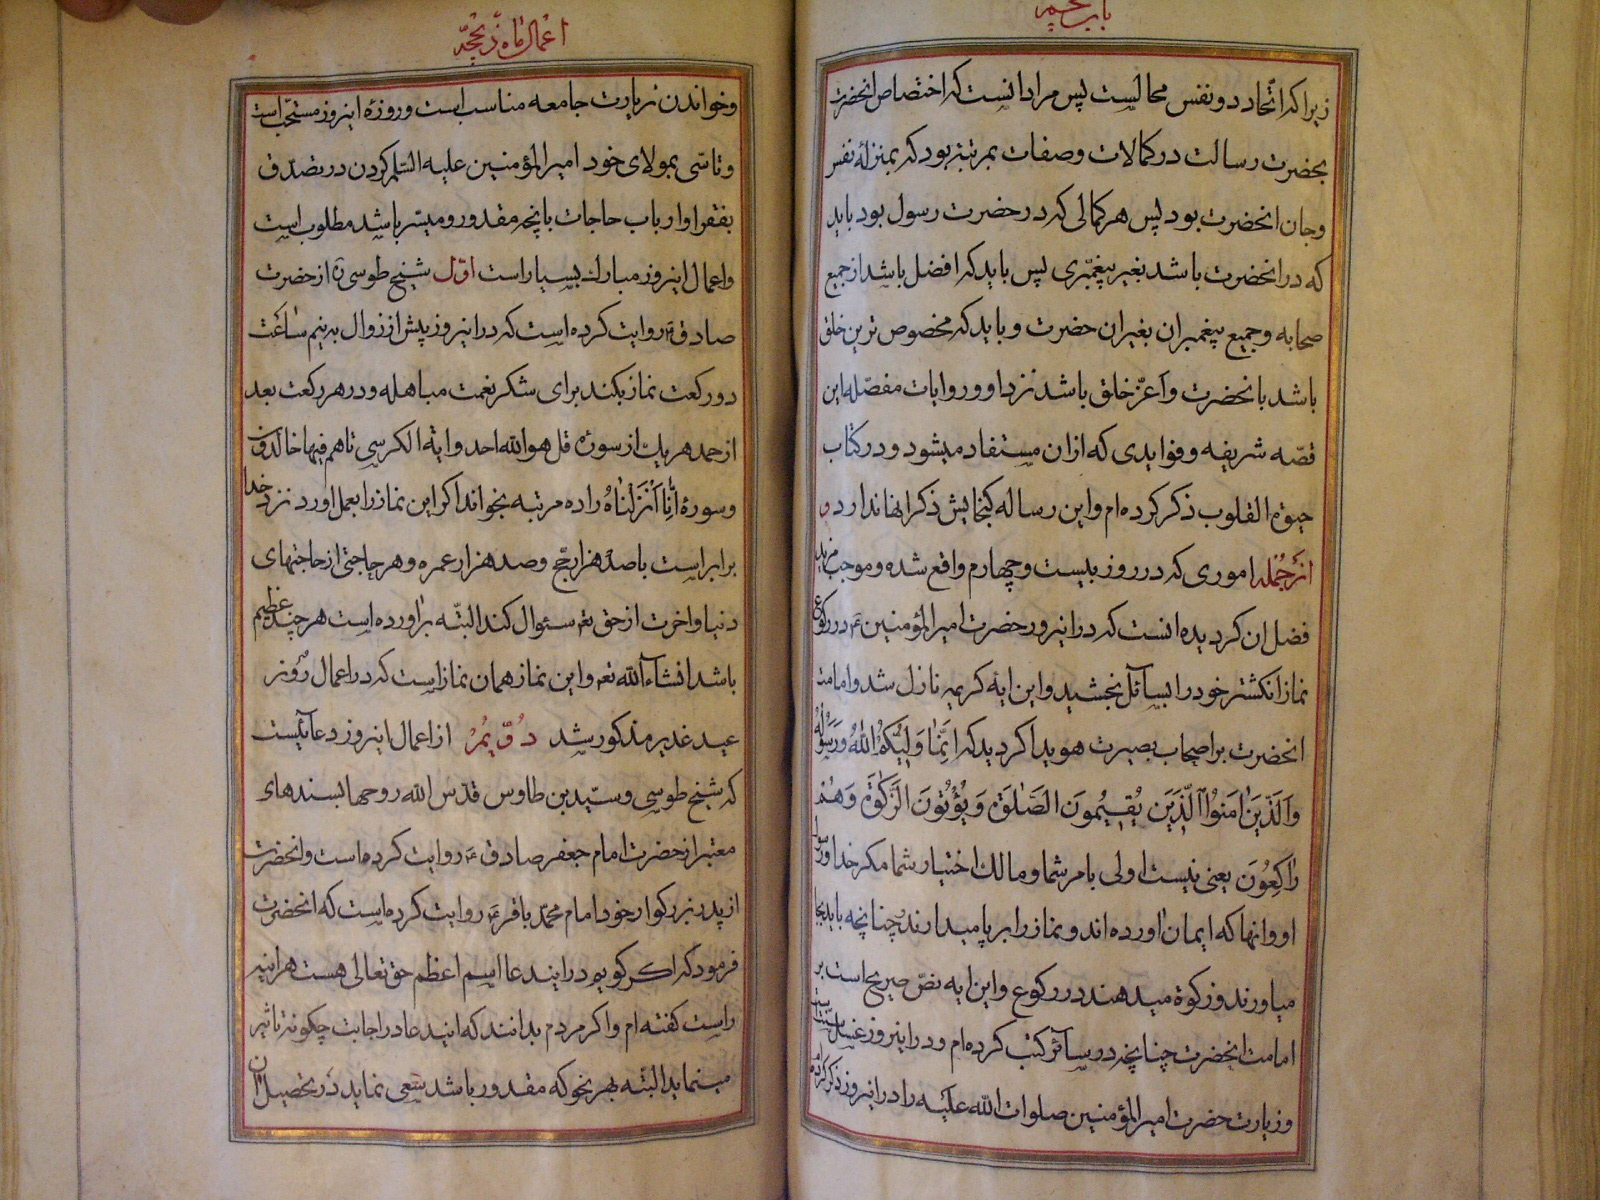 باب پنجم
زیرا که اتّحاد دو نفس محالست پس مراد انست که اختصاص انحضرت
بحضرت رسالت در کمالات وصفات بمرتبۀ بود که بمنزلۀ نفس
وجان انحضرت بود پس هر کمالی که در حضرت رسول بود باید
که در انحضرت باشد بغیر پیغمبری پس باید که افضل باشد از جمیع
صحابه وجمیع پیغمبران بغیر ان حضرت و باید که مخصوص ترین خلق
باشد بانحضرت واعزّ خلق باشد نزد او وروایات مفصّله این
قصّه شریفه وفوایدی که ازان مستفاد میشود ودر کتاب
حیوة القلوب ذکر کرده ام واین رساله کنجایش ذکر انها ندارد و
ازجمله اموری که در روز بیست وچهارم واقع شده وموجب مزید
فضل ان کردیده انست که در اینروز حضرت امیر المؤمنین ع در رکوع
نماز انکشتر خود را بسائل بخشید واین ایه کریمه نازل شد وامامت
انحضرت بر اصحاب بصیرت هویدا کردید که اِنَّمَا وَلِیُّکُمُ اللّٰهُ وَرَسُولُهُ
وَالَّذِینَ اٰمَنُوا الَّذِینَ یُقِیمُونَ الصَّلٰوةَ وَیُؤْتُونَ الزَّکٰوةَ وَهُمْ
رٰاکِعُونَ یعنی نیست اولی بامر شما ومالک اختیار شما مکر خدا ورسول
او وانها که ایمان اورده اند ونماز را بر پا میدارند چنانچه باید بجا
میاورند وزکوة میدهند در رکوع واین ایه نصّ صریح است بر
امامت انحضرت چنانچه در سائر کتب کرده ام ودر اینروز غسل سنّت است
وزیارت حضرت امیر المؤمنین صلوات الله علیه را در اینروز ذکر کرده ام
اعمال ماه ذیحجّه
وخواندن زیارت جامعه مناسب است وروزۀ اینروز مستحبّ است
وتاسّی بمولای خود امیر المؤمنین علیه السّلم کردن در تصدّق
بفقرا وارباب حاجات بانچه مقدور ومیسّر باشد مطلوب است
واعمال اینروز مبارک بسیار است اوّل شیخ طوسی ره از حضرت
صادق ع روایت کرده است که در اینروز پیش از زوال به نیم ساعت
دو رکعت نماز بکند برای شکر نعمت مباهله ودر هر رکعت بعد
از حمد هر یک از سورۀ قل هو الله احد وایة الکرسی تا هم فیها خالدون
وسورۀ اِنّٰا اَنْزَلْنٰاهُ را ده مرتبه بخواند اکر این نماز را بعمل اورد نزد خدا
برابر است با صد هزار حجّ وصد هزار عمره وهر حاجتی از حاجتهای
دنیا واخرت از حق تعه سئوال کند البتّه براورده است هر چند عظیم
باشد انشاء الله تعه واین نماز همان نماز است که در اعمال روز
عید غدیر مذکور شد دوّیم از اعمال اینروز دعائیست
که شیخ طوسی وسیّد بن طاوس قدّس الله روحهما بسندهای
معتبر از حضرت امام جعفر صادق ع روایت کرده است وانحضرت
از پدر بزرکوار خود امام محمّد باقر ع روایت کرده است که انحضرت
فرمود که اکر کویم در ایندعا اسم اعظم حق تعالی هست هراینه
راست کفته ام واکر مردم بدانند که ایندعا در اجابت چکونه تاثیر
مینماید البتّه بهر نحو که مقدور باشد سعی نماید در تحصیل ان